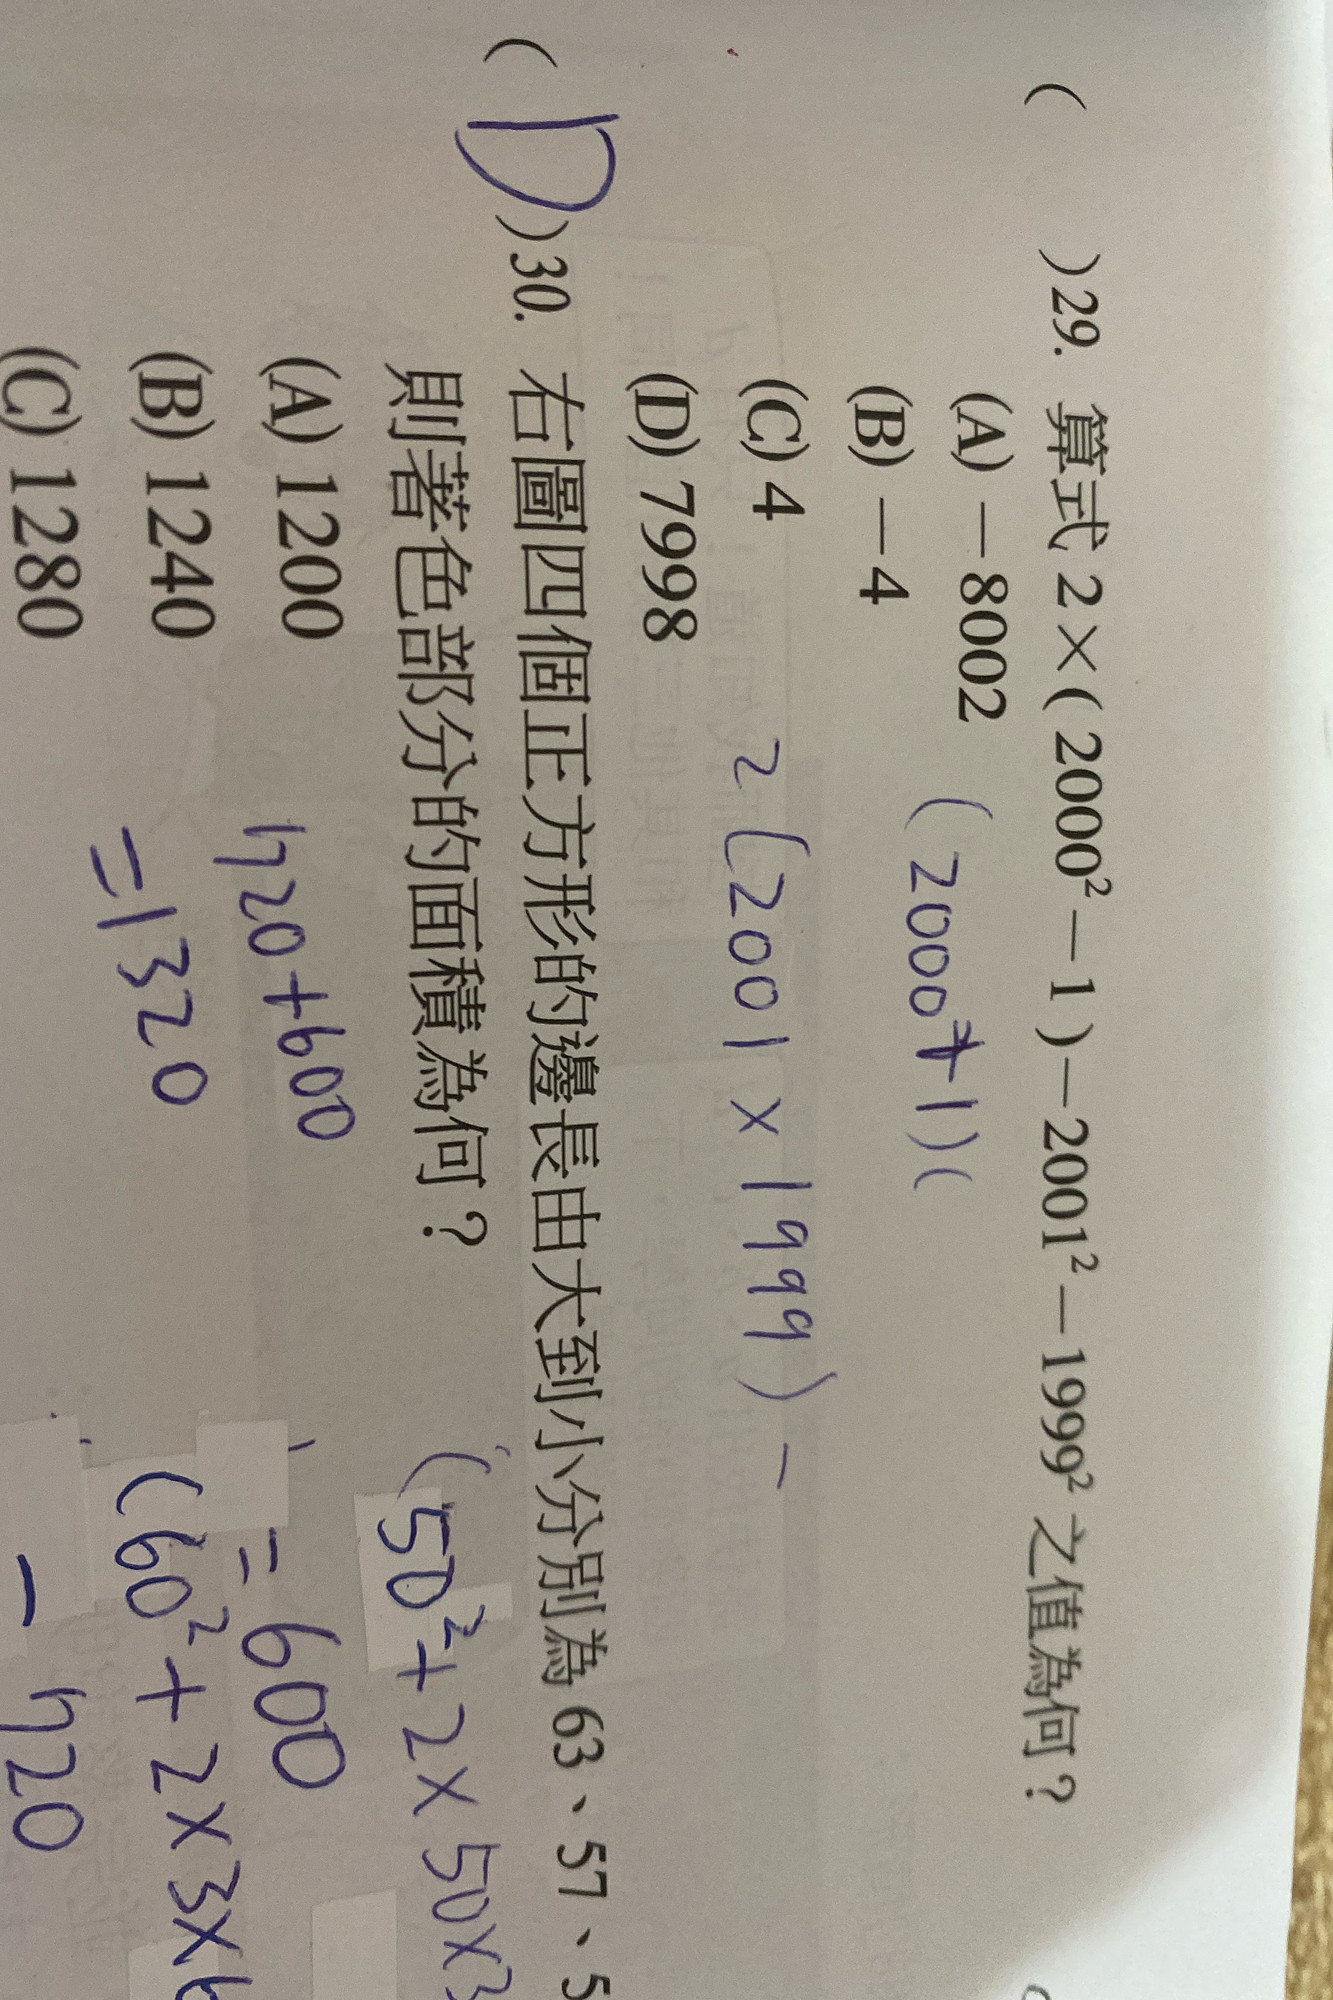 ( )29. 算式 2×( 2000²－1 )－2001²－1999² 之值為何？
(A) －8002
(B) －4
(2000+1)(
(C) 4
2 (2001 × 1999) －
(D) 7998
( D )30. 右圖四個正方形的邊長由大到小分別為 63、57、5
則著色部分的面積為何？
(50² + 2 × 50×3
(A) 1200
720+600
= 600
(B) 1240
=1320
(60² + 2×3×6
(C) 1280
720